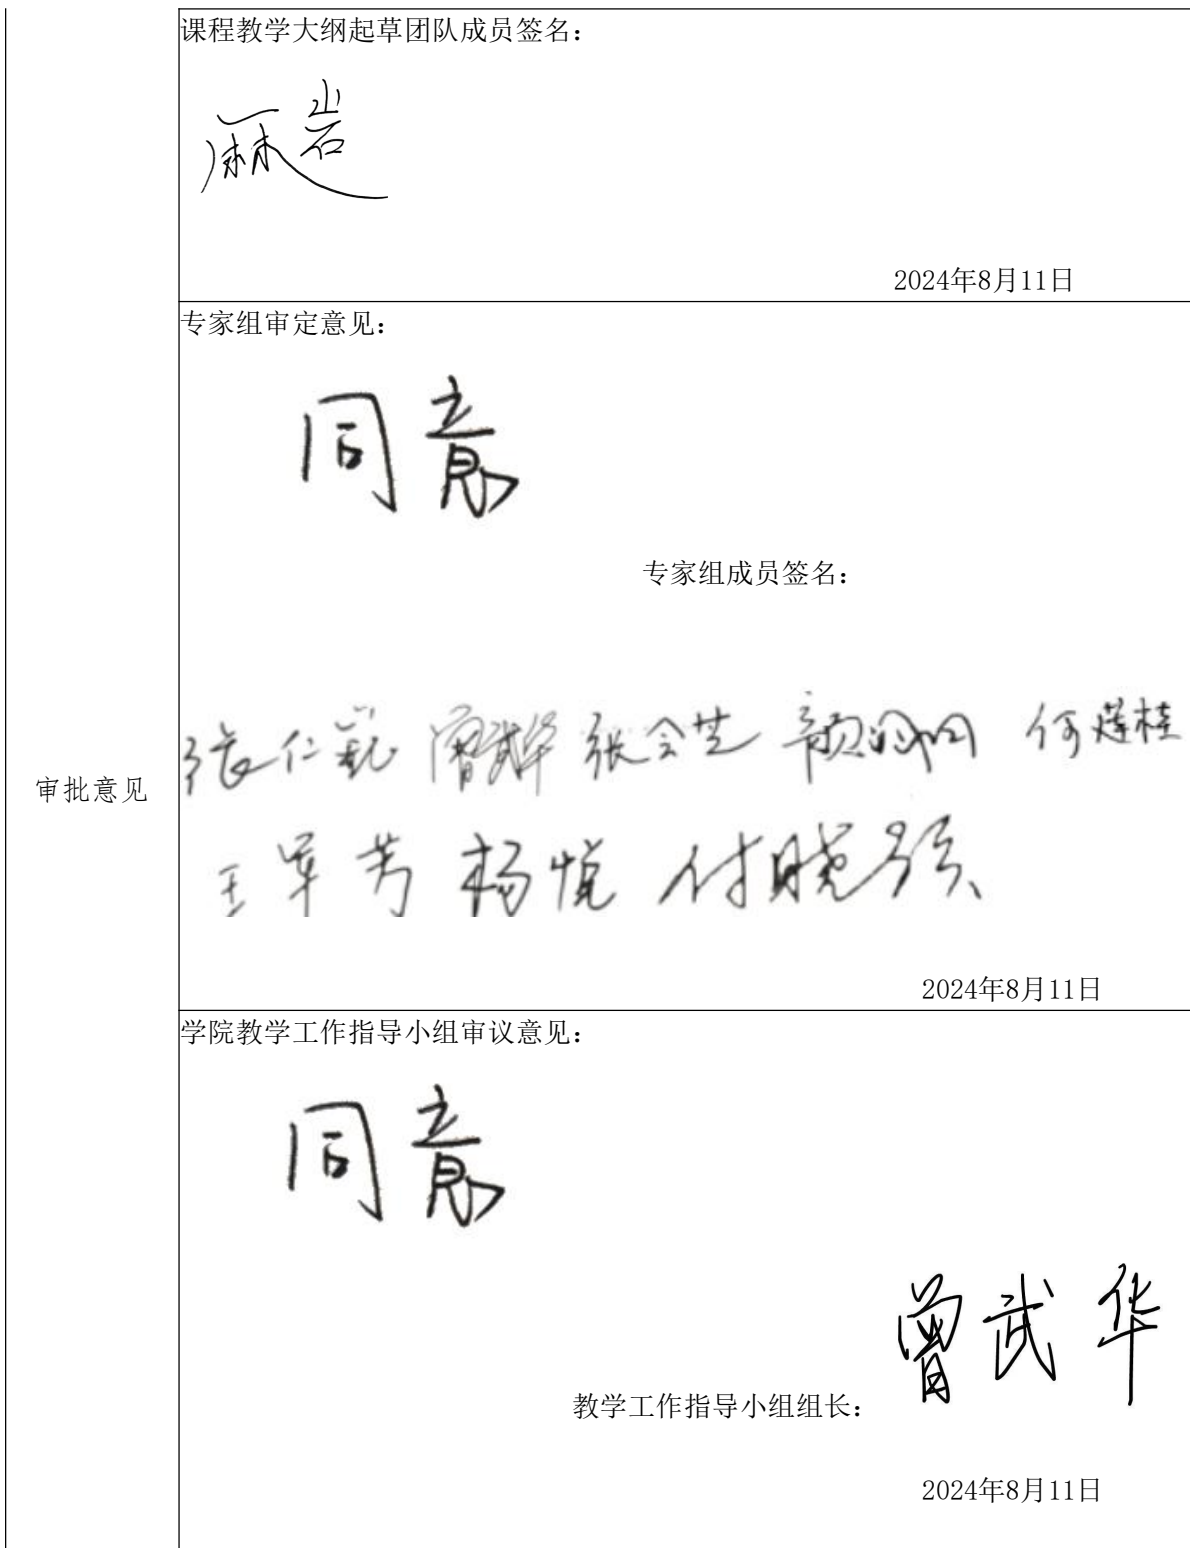 课程教学大纲起草团队成员签名：
麻岩
2024年8月11日
专家组审定意见：
同意
专家组成员签名：
审批意见
张仁 曾武华 张会芝 颜 何莲桂
王军芳 杨悦 付晓强
2024年8月11日
学院教学工作指导小组审议意见：
同意
曾武华
教学工作指导小组组长：
2024年8月11日